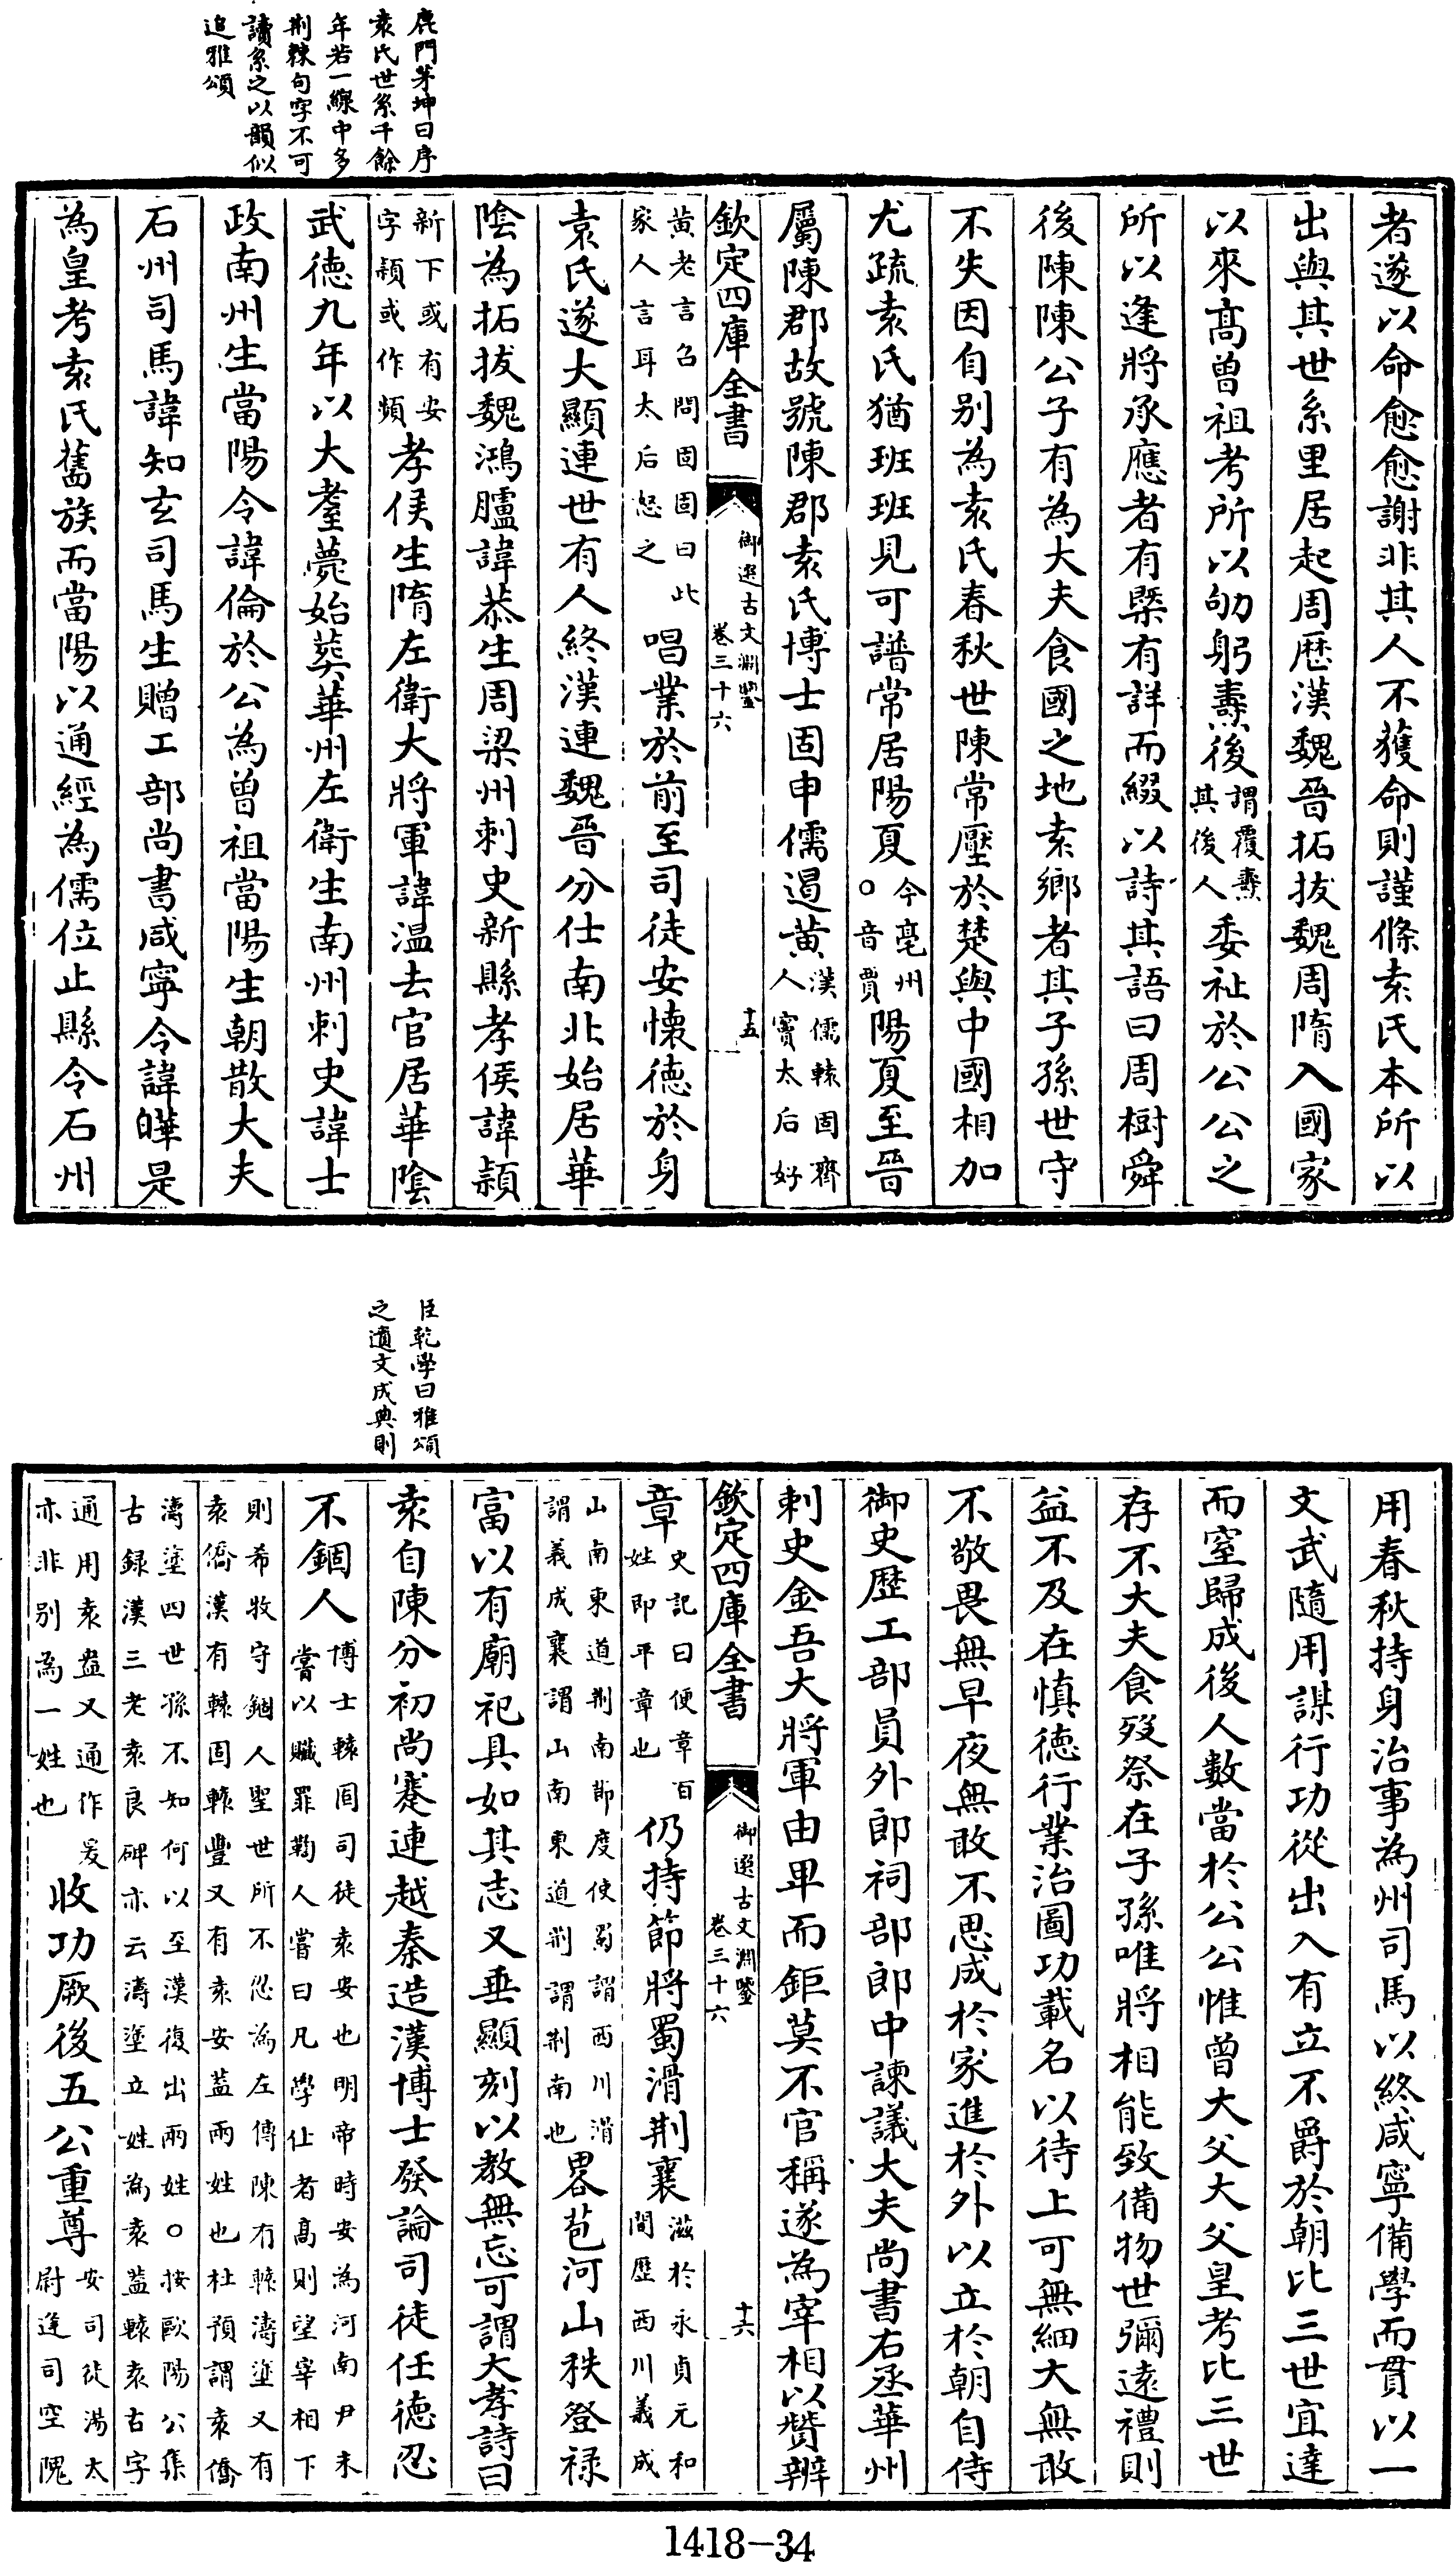 鹿門茅坤曰序
袁氏世系千餘
年若一線中多
荆棘句字不可
讀系之以韻似
追雅頌
者遂以命愈愈謝非其人不獲命則謹條袁氏本所以
出與其世系里居起周歷漢魏晉拓拔魏周隋入國家
以來髙曾祖考所以劬躬燾後謂覆燾其後人委祉於公公之
所以逢將承應者有槩有詳而綴以詩其語曰周樹舜
後陳陳公子有為大夫食國之地袁鄉者其子孫世守
不失因自别為袁氏春秋世陳常壓於楚與中國相加
尤疏袁氏猶班班見可譜常居陽夏今亳州○音賈陽夏至晉
屬陳郡故號陳郡袁氏博士固申儒遏黄漢儒轅固齊人竇太后好
欽定四庫全書
御選古文淵鑒
卷三十六
十五
黄老言召問固固曰此家人言耳太后怒之唱業於前至司徒安懐徳於身
袁氏遂大顯連世有人終漢連魏晉分仕南北始居華
隂為拓拔魏鴻臚諱恭生周梁州刺史新縣孝侯諱頴
新下或有安字頴或作頻孝侯生隋左衛大將軍諱温去官居華隂
武徳九年以大耋薨始葬華州左衛生南州刺史諱士
政南州生當陽令諱倫於公為曾祖當陽生朝散大夫
石州司馬諱知玄司馬生贈工部尚書咸寧令諱曄是
為皇考袁氏舊族而當陽以通經為儒位止縣令石州
臣乾學曰雅頌
之遺文成典則
用春秋持身治事為州司馬以終咸寧備學而貫以一
文武隨用謀行功從出入有立不爵於朝比三世宜達
而窒歸成後人數當於公公惟曾大父大父皇考比三世
存不大夫食歿祭在子孫唯將相能致備物世彌逺禮則
益不及在慎徳行業治圖功載名以待上可無細大無敢
不敬畏無早夜無敢不思成於家進於外以立於朝自侍
御史歴工部員外郎祠部郎中諫議大夫尚書右丞華州
刺史金吾大將軍由卑而鉅莫不官稱遂為宰相以贊辨
欽定四庫全書
御選古文淵鑒
卷三十六
十六
章史記曰便章百姓即平章也仍持節將蜀滑荆襄滋於永貞元和間歴西川義成
山南東道荆南節度使蜀謂西川滑謂義成襄謂山南東道荆謂荆南也畧苞河山秩登禄
富以有廟祀具如其志又垂顯刻以教無忘可謂大孝詩曰
袁自陳分初尚蹇連越秦造漢博士發論司徒任徳忍
不錮人博士轅固司徒袁安也明帝時安為河南尹未嘗以贓罪鞫人嘗曰凡學仕者髙則望宰相下
則希牧守錮人聖世所不忍為左傳陳有轅濤塗又有袁僑漢有轅固轅豐又有袁安葢兩姓也杜預謂袁僑
濤塗四世孫不知何以至漢復出兩姓○按歐陽公集古録漢三老袁良碑亦云濤塗立姓為袁葢轅袁古字
通用袁盎又通作爰亦非别為一姓也收功厥後五公重尊安司徒湯太尉逢司空隗
1418-34